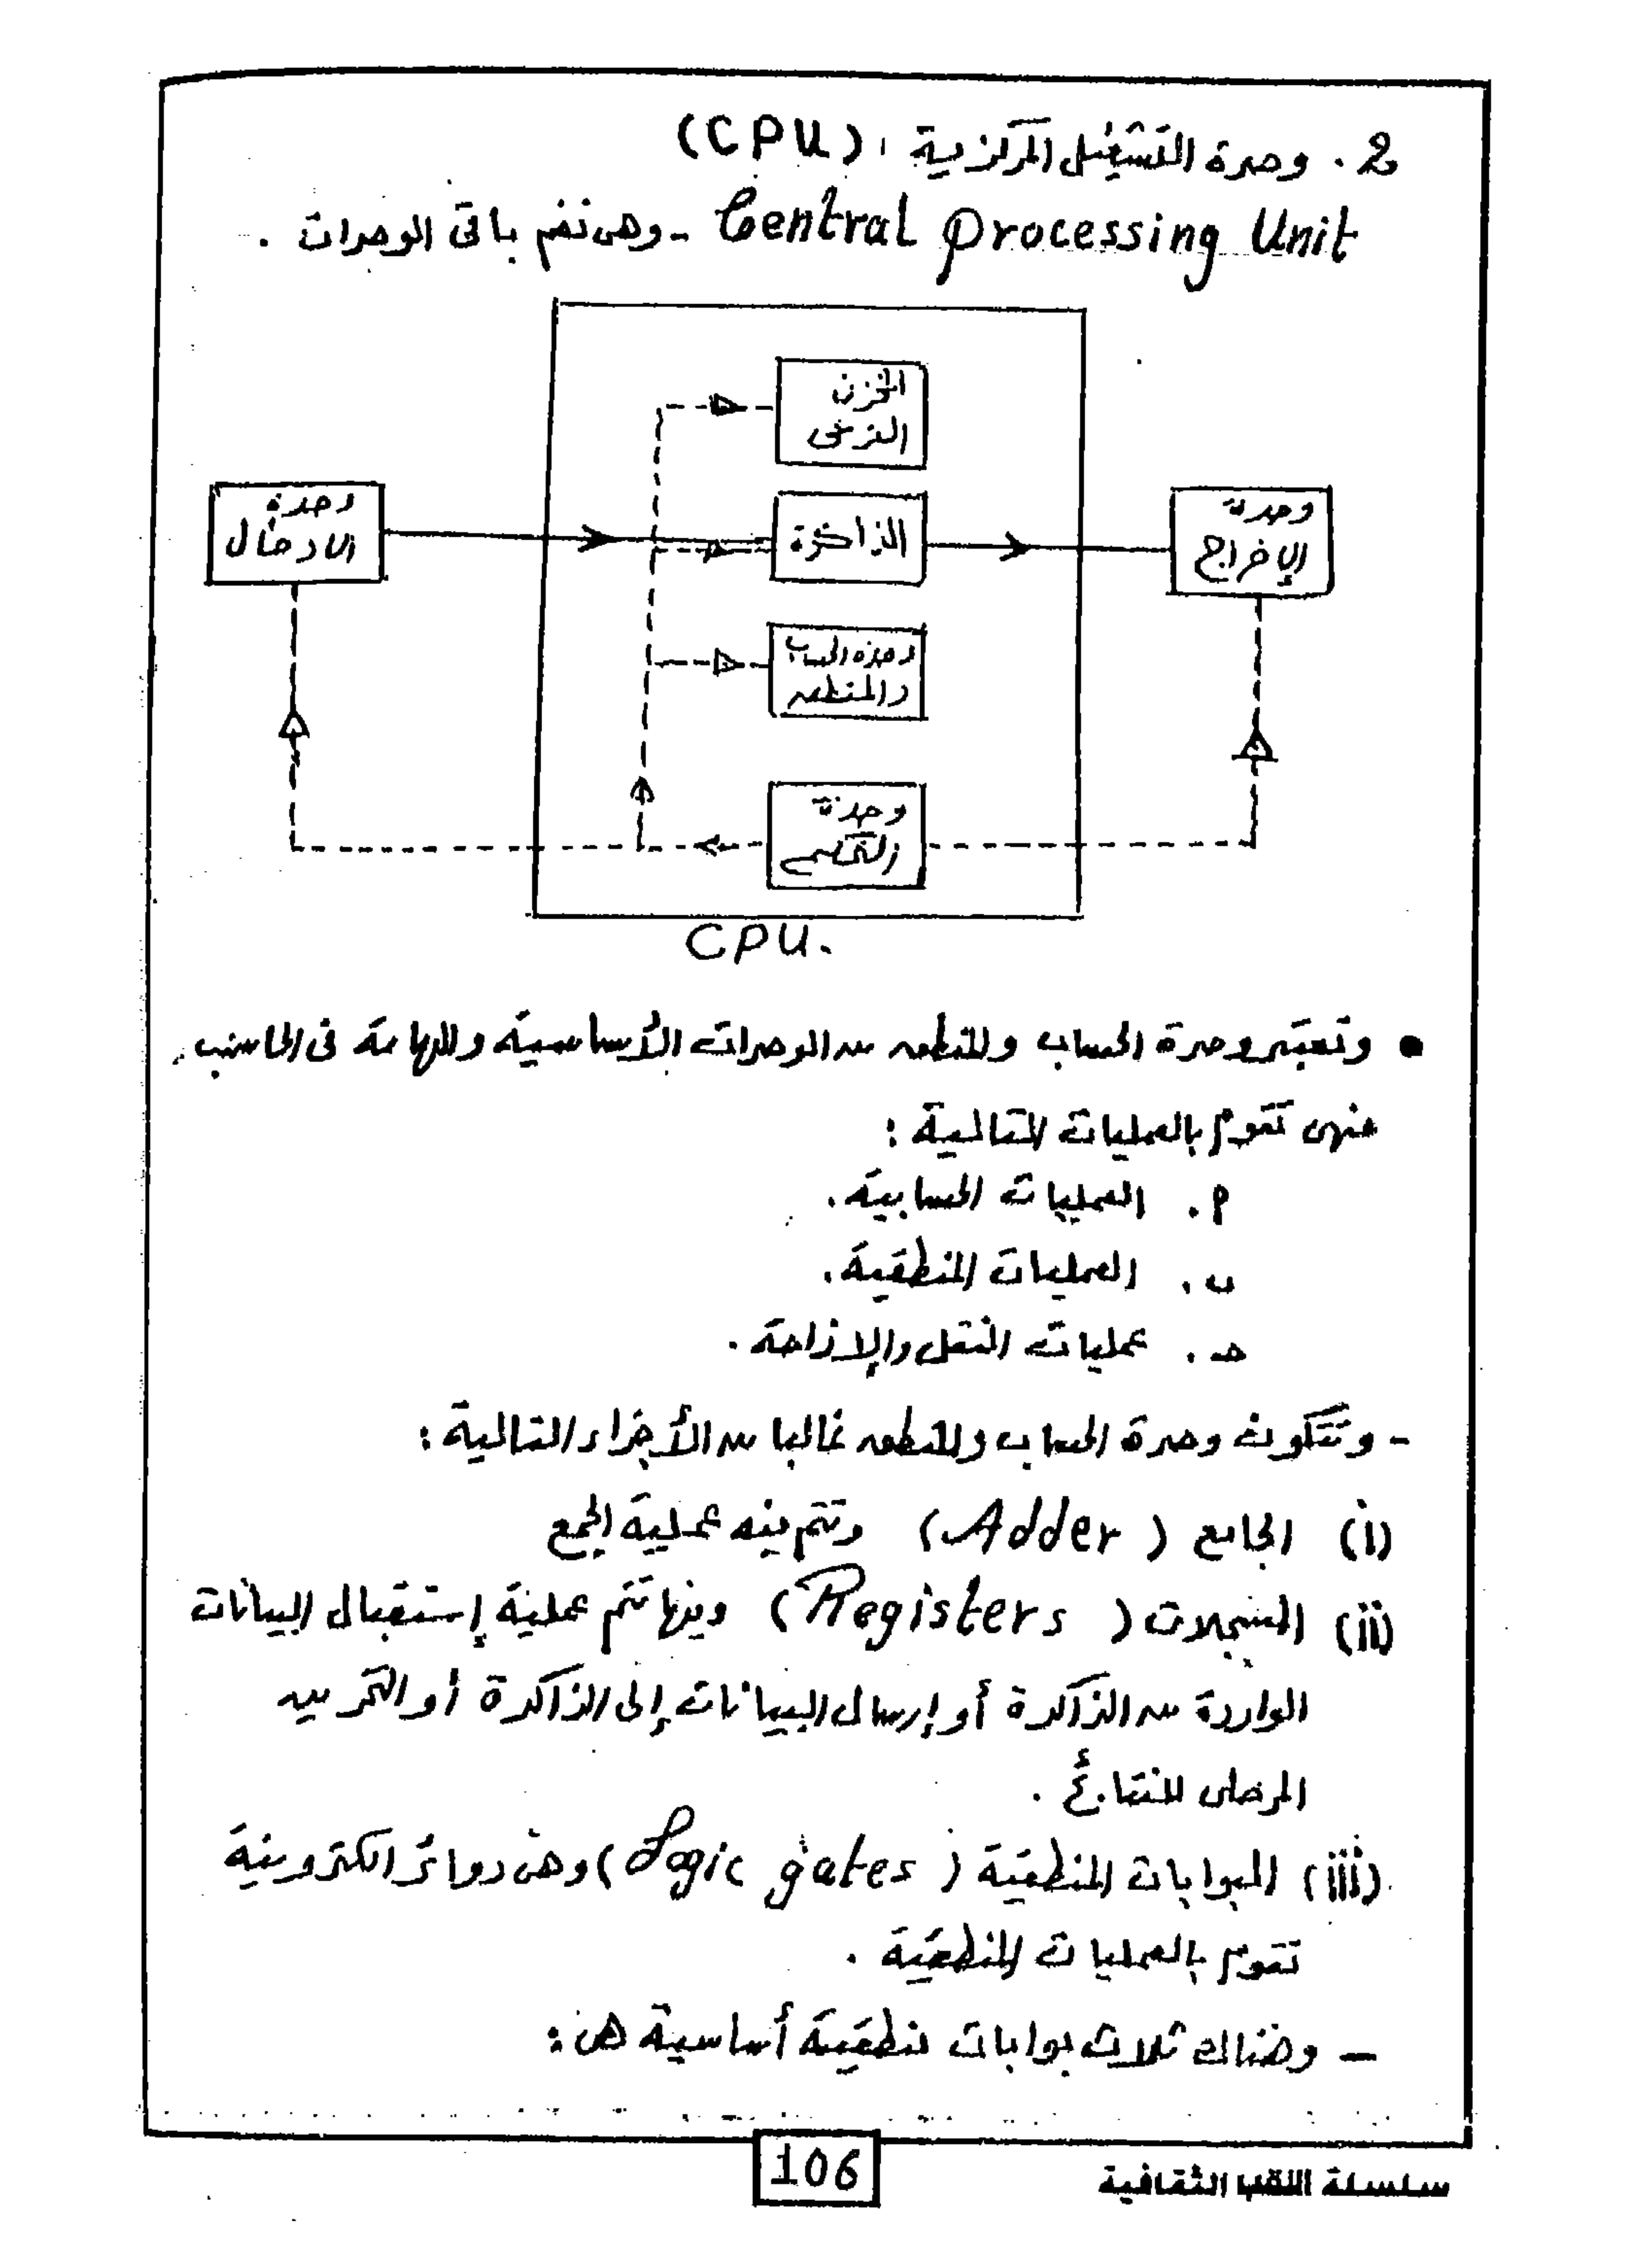 2. وحدة التشغيل المركزية : (CPU)
Central Processing Unit - وهى تضم باقى الوحدات .
المخزن
الفرعى
وحدة
الادخال
الذاكرة
وحدة
الإخراج
وحدة الحساب
والمنطق
وحدة
التحكم
CPU.
• وتعتبر وحدة الحساب والمنطق من الوحدات الأساسية والهامة فى الحاسب .
فهى تقوم بالعمليات التالية :
أ . العمليات الحسابية .
ب . العمليات المنطقية .
حـ . عمليات النقل والإزاحة .
- وتتكون وحدة الحساب والمنطق غالبا من الأجزاء التالية :
(i) الجامع (Adder) وتتم فيه عملية الجمع
(ii) المسجلات (Registers) وفيها تتم عملية إستقبال البيانات
الواردة من الذاكرة أو إرسال البيانات إلى الذاكرة أو التخزين
المرحلى للنتائج .
(iii) البوابات المنطقية (Logic gates) وهى دوائر الكترونية
تقوم بالعمليات المنطقية .
- وهناك ثلاث بوابات منطقية أساسية هى :
106
سلسلة الثقافية